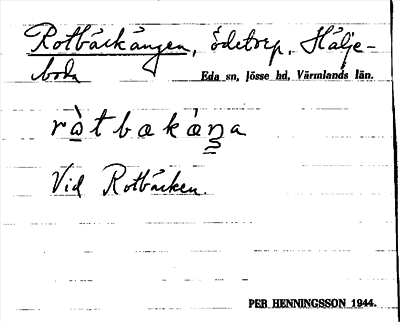 Rotbäckängen, ödetorp, Hälje-
boda
Eda sn, Jösse hd, Värmlands län.
Vid Rotbäcken.
PER HENNINGSSON 1944.